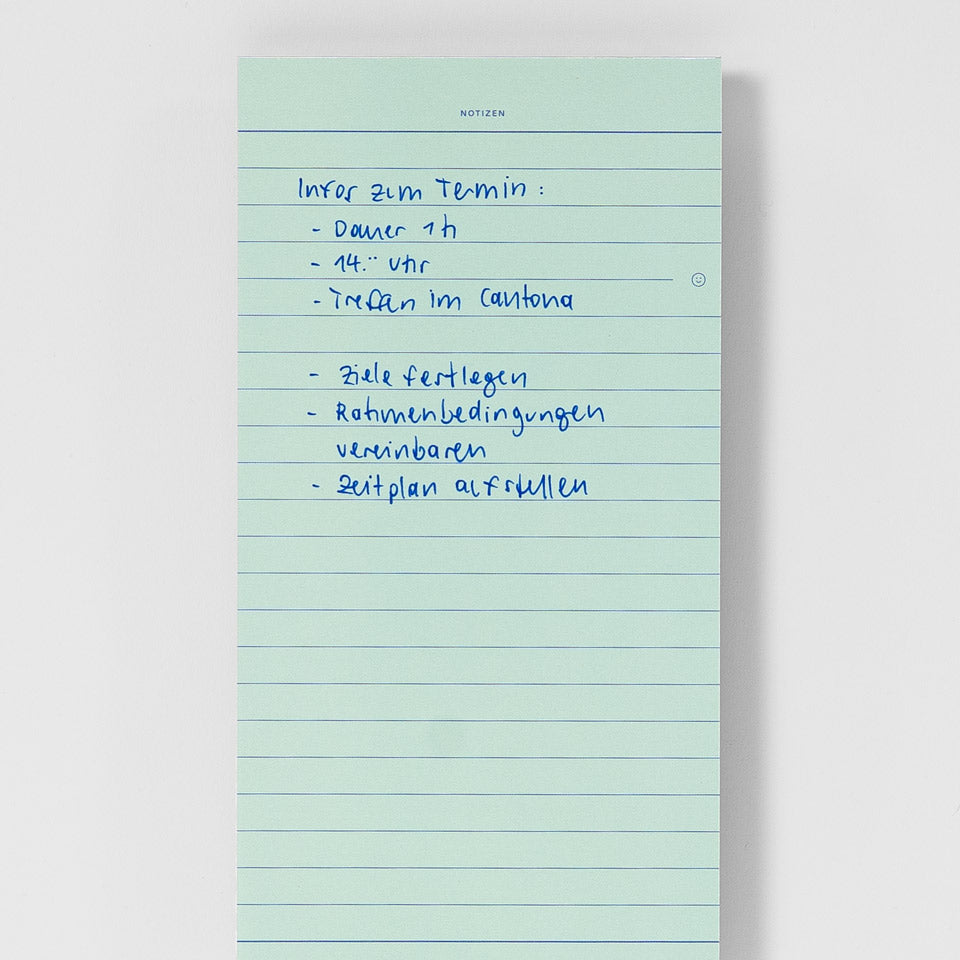 NOTIZEN
Infos zum Termin:
- Dauer 1h
- 14.ºº Uhr
- Treffen im Cantona
- Ziele festlegen
- Rahmenbedingungen
vereinbaren
- Zeitplan aufstellen